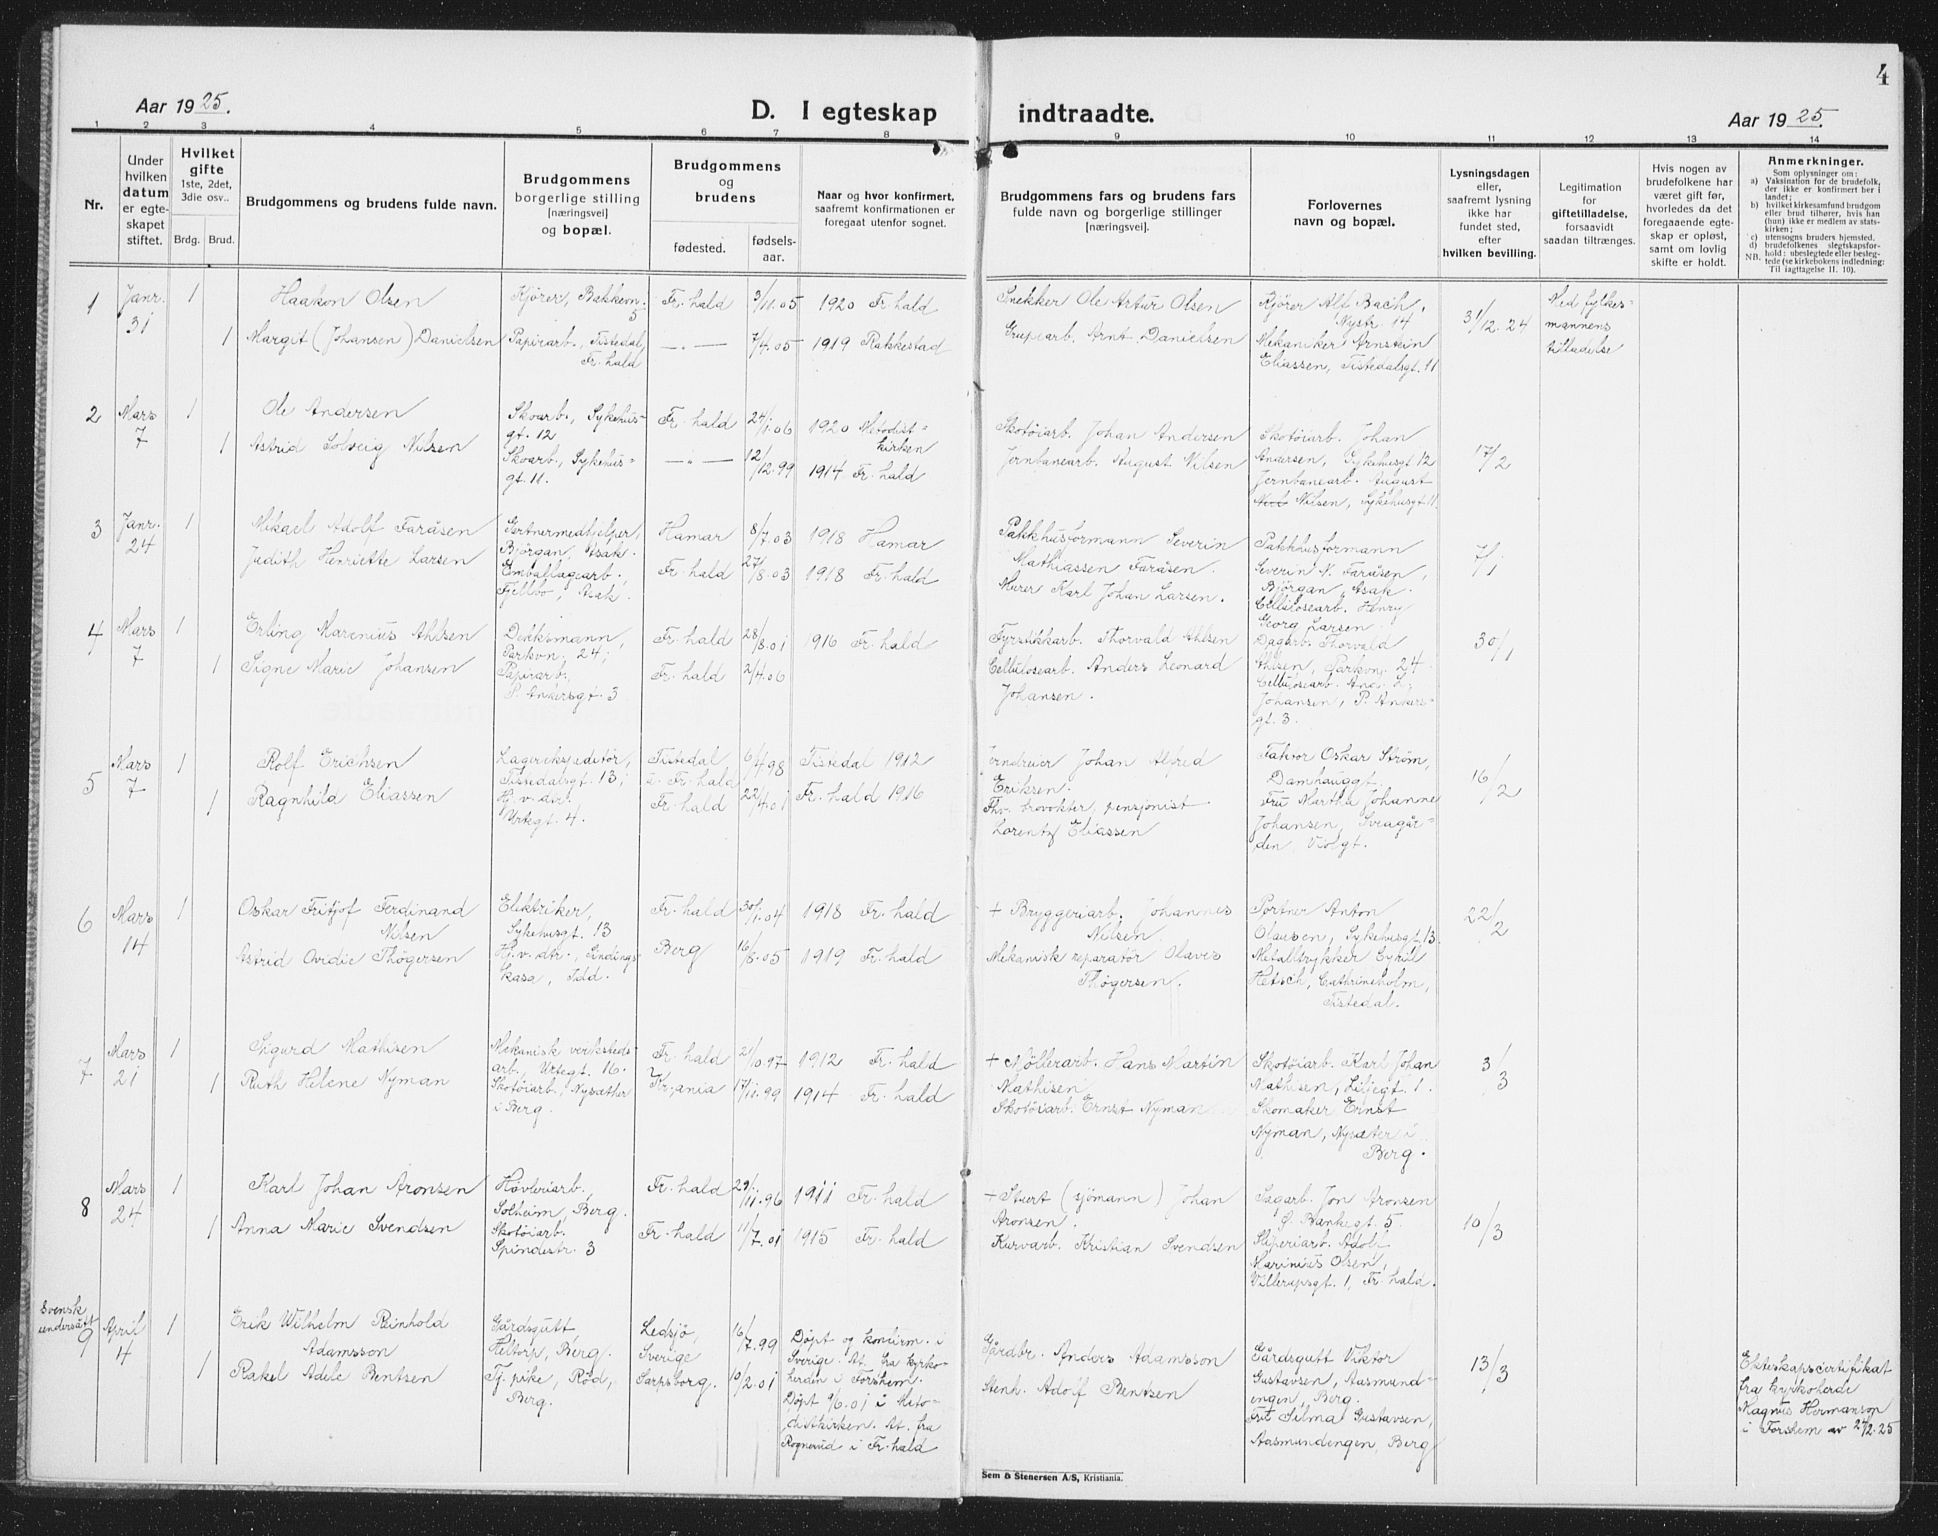 4
Aar 1925.
D. I egteskap indtraadte.
Aar 1925.
1 2 3 4 5 6 7 8 9 10 11 12 13 14
Nr.
Under
hvilken
datum
er egte-
skapet
stiftet.
Hvilket
gifte
1ste, 2det,
3die osv..
Brdg. Brud.
Brudgommens og brudens fulde navn.
Brudgommens
borgerlige stilling
[næringsvei]
og bopæl.
Brudgommens
og
brudens
fødested.
fødsels-
aar.
Naar og hvor konfirmert,
saafremt konfirmationen er
foregaat utenfor sognet.
Brudgommens fars og brudens fars
fulde navn og borgerlige stillinger
[næringsvei].
Forlovernes
navn og bopæl.
Lysningsdagen
eller,
saafremt lysning
ikke har
fundet sted,
efter
hvilken bevilling.
Legitimation
for
giftetilladelse,
forsaavidt
saadan tiltrænges.
Hvis nogen av
brudefolkene har
været gift før,
hvorledes da det
foregaaende egte-
skap er opløst,
samt om lovlig
skifte er holdt.
Anmerkninger.
Som oplysninger om:
a) Vaksination for de brudefolk,
der ikke er konfirmert her i
landet;
b) hvilket kirkesamfund brudgom
eller brud tilhører, hvis han
(hun) ikke er medlem av stats-
kirken;
c) utensogns bruders hjemsted.
d) brudefolkenes slegtskapsfor-
hold: ubeslegtede eller besleg-
NB. tede (se kirkebokens indledning:
Til iagttagelse II. 10).
1
Janr.
31
1
Haakon Olsen
Kjører, Bakkevn.
5
Fr.hald
3/11.05
1920 Fr.hald
Snekker Ole Artur Olsen
Kjører Alf Bach,
Nystr. 14
31/12.24
Med fylkes-
mannens
tilladelse
1
Margit (Johansen) Danielsen
Papirarb., Tistedal,
Fr.hald
— " —
7/4.05
1919 Rakkestad
Arnt Danielsen
Mekaniker Arnstein
Eliassen, Tistedalsgt. 11
2
Mars
7
1
Ole Andersen
Skoarb., Sykehus-
gt. 12
Fr.hald
24/1.06
1920 Metodist-
kirken
Skotøiarb. Johan Andersen
Skotøiarb. Johan
Andersen, Sykehusgt 12
17/2
1
Astrid Solveig Nilsen
Skoarb., Sykehus-
gt. 11.
— " —
12/12.99
1914 Fr.hald
Jernbanearb. August Nilsen
Jernbanearb. August
Nilsen, Sykehusgt. 11
3
Janr.
24
1
Mikael Adolf Faråsen
Gartnermedhjelper,
Bjørgan, Asak.
Hamar
8/7.03
1918 Hamar
Pakkhusformann Severin
Mathiassen Faråsen.
Pakkhusformann
Severin N. Faråsen,
Bjørgan, Asak.
7/1
Judith Henriette Larsen
Emballagearb.,
Fjellbo, Asak.
Fr.hald
27/8.03
1918 Fr.hald
Murer Karl Johan Larsen.
Cellulosearb. Henry
Georg Larsen.
4
Mars
7
1
Erling Marenius Ahlsen
Dekksmann,
Parkvn. 24;
Fr.hald
28/8.01
1916 Fr.hald
Fyrstikkarb. Thorvald Ahlsen
Dagarb. Thorvald
Ahlsen, Parkvn. 24
30/1
1
Signe Marie Johansen
Papirarb.,
P. Ankersgt. 3
Fr.hald
2/4.06
Cellulosearb. Anders Leonard
Johansen.
Cellulosearb. And. L.
Johansen, P. Ankers-
gt. 3.
5
Mars
7
1
Rolf Erichsen
Lagerekspeditør,
Tistedalsgt. 13;
Tistedal,
Fr.hald
6/4.98
Tistedal 1912
Jerndreier Johan Alfred
Eriksen.
Faktor Oskar Strøm,
Damhauggt.
16/2
1
Ragnhild Eliassen
Hj.v. dtr.
Urtegt. 4.
Fr.hald
22/4.01
Fr.hald 1916
Thv. brovokter, pensjonist
Lorentz Eliassen
Fru Martha Johanne
Johansen, Sveagår-
den, Violgt.
6
Mars
14
1
Oskar Fritjof Ferdinand
Nilsen
Elektriker,
Sykehusgt. 13
Fr.hald
30/1.04
1918 Fr.hald
+ Bryggeriarb. Johannes
Nilsen.
Portner Anton
Olausen, Sykehusgt. 13.
22/2
Astrid Ovidie Thøgersen
Hj.v. dtr., Sindings-
kasa, Idd.
Berg
16/8.05
1919 Fr.hald
Mekanisk reparatør Olavis
Thøgersen.
Metalltrykker Eykil
Hetsch, Cathrineholm,
Tistedal.
7
Mars
21
1
Sigurd Mathisen
Mekanisk verksteds-
arb., Urtegt. 16.
Fr.hald
21/10.97
1912 Fr.hald
+ Møllerarb. Hans Martin
Mathisen
Skotøiarb. Karl Johan
Mathisen, Liljegt. 1.
3/3
1
Ruth Helene Nyman
Skotøiarb., Nysæther
i Berg.
Kr.ania
17/11.99
1914 Fr.hald
Skotøiarb. Ernst Nyman
Skomaker Ernst
Nyman, Nysæter i
Berg.
8
Mars
24
1
Karl Johan Aronsen
Høvleriarb.,
Solheim, Berg.
Fr.hald
29/11.96
1911 Fr.hald
+ Stuert (sjömann) Johan
Aronsen.
Sagarb. Jon Aronsen
Ø. Bankegt. 5.
10/3
1
Anna Marie Svendsen
Skotøiarb.
Spindestr. 3
Fr.hald
11/7.01
1915 Fr.hald
Kurvarb. Kristian Svendsen
Sliperiarb. Adolf
Marinius Olsen,
Villerupsgt. 1, Fr.hald.
Svensk
undersått
9
April
4
1
Erik Wilhelm Reinhold
Adamsson
Gårdsgutt
Heltorp, Berg.
Ledsjö,
Sverige
16/7.99
Døpt og konfirm. i
Sverige. At. fra kyrko-
herden i Forshem.
Gårdbr. Anders Adamsson
Gårdsgutt Viktor
Gustavsen, Aasmund-
engen, Berg.
13/3
Ekteskapscertifikat
fra kyrkoherde
Magnus Hermanson
i Forshem av 24/2.25
1
Rakel Adele Bentsen
Tj.pike, Rød,
Berg.
Sarpsborg.
10/2.01
Døpt 9/6.01 i Meto-
distkirken. At. fra
Rognerud i Fr.hald
Stenh. Adolf Bentsen
Frk Silma Gustavsen,
Aasmundengen, Berg
Sem & Stenersen A/S, Kristiania.